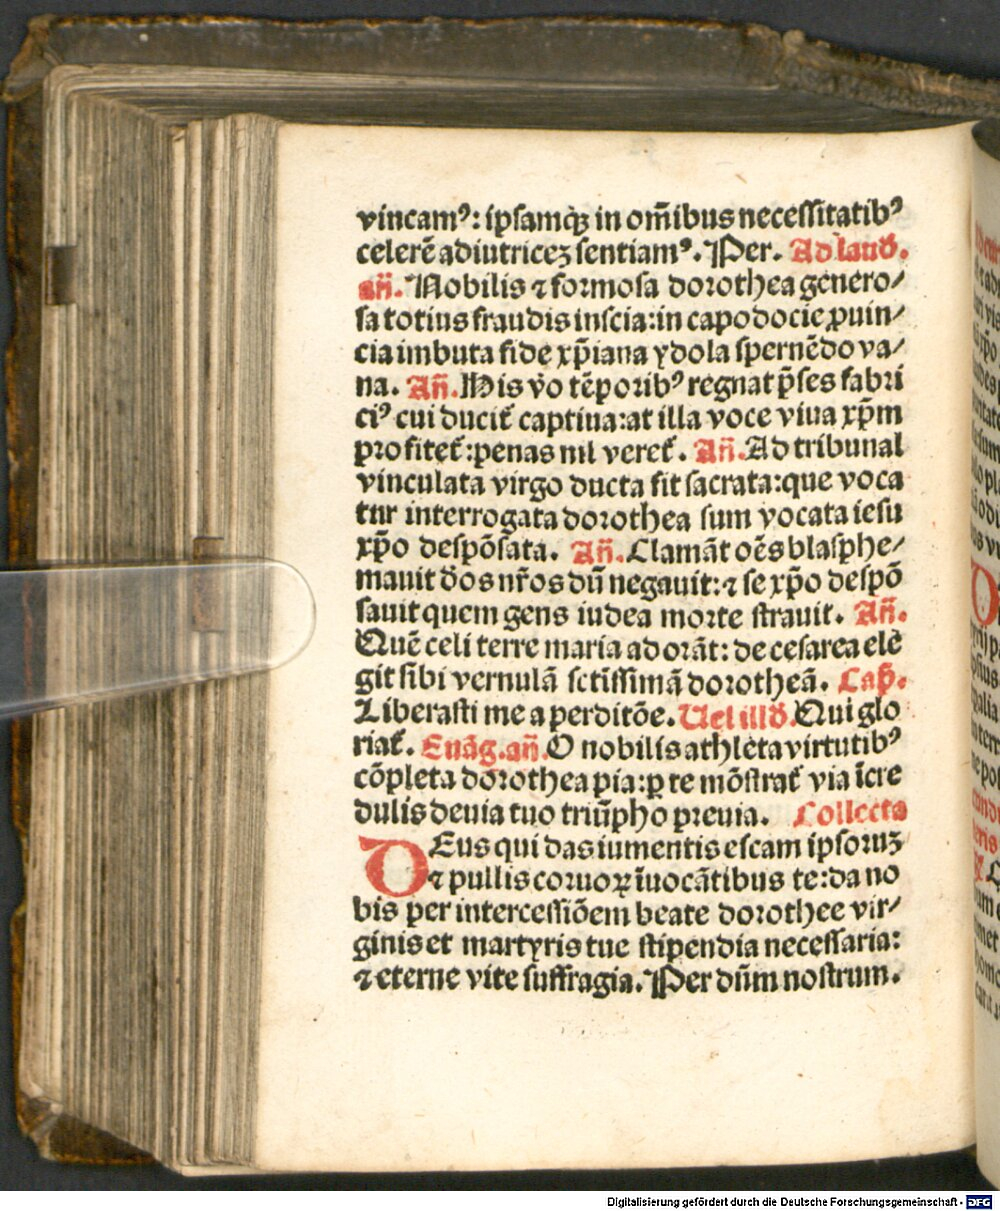 vincamꝰ: ipsamqꝫ in om̄ibus necessitatibꝰ
celerē adiutricez sentiamꝰ. Per. Ad laud̄.
an̄. Nobilis ⁊ formosa dorothea genero/
sa totius fraudis inscia: in capodocie ꝓuin/
cia imbuta fide xp̄iana ydola spernēdo va/
na. An̄. His v̄o tēporibꝰ regnat p̄ses fabri
ciꝰ cui ducit̄ captiua: at illa voce viua xp̄m
profitet̄: penas nil veret̄. An̄. Ad tribunal
vinculata virgo ducta fit sacrata: que voca
tur interrogata dorothea sum vocata iesu
xp̄o despōsata. An̄. Clamāt oēs blasphe/
mauit d̄os nr̄os dū negauit: ⁊ se xp̄o despō
sauit quem gens iudea morte strauit. An̄.
Quē celi terre maria adorāt: de cesarea ele
git sibi vernulā sctīssimā dorotheā. Cap̄.
Liberasti me a perditōe. Uel illd̄. Qui glo
riat̄. Euāg. an̄. O nobilis athleta virtutibꝰ
cōpleta dorothea pia: ꝑ te mōstrat̄ via īcre
dulis deuia tuo triūpho preuia. Collecta
DEus qui das iumentis escam ipsoruꝫ
⁊ pullis coruoꝝ īuocātibus te: da no
bis per intercessiōem beate dorothee vir/
ginis et martyris tue stipendia necessaria:
⁊ eterne vite suffragia. Per dn̄m nostrum.
Digitalisierung gefördert durch die Deutsche Forschungsgemeinschaft - DFG